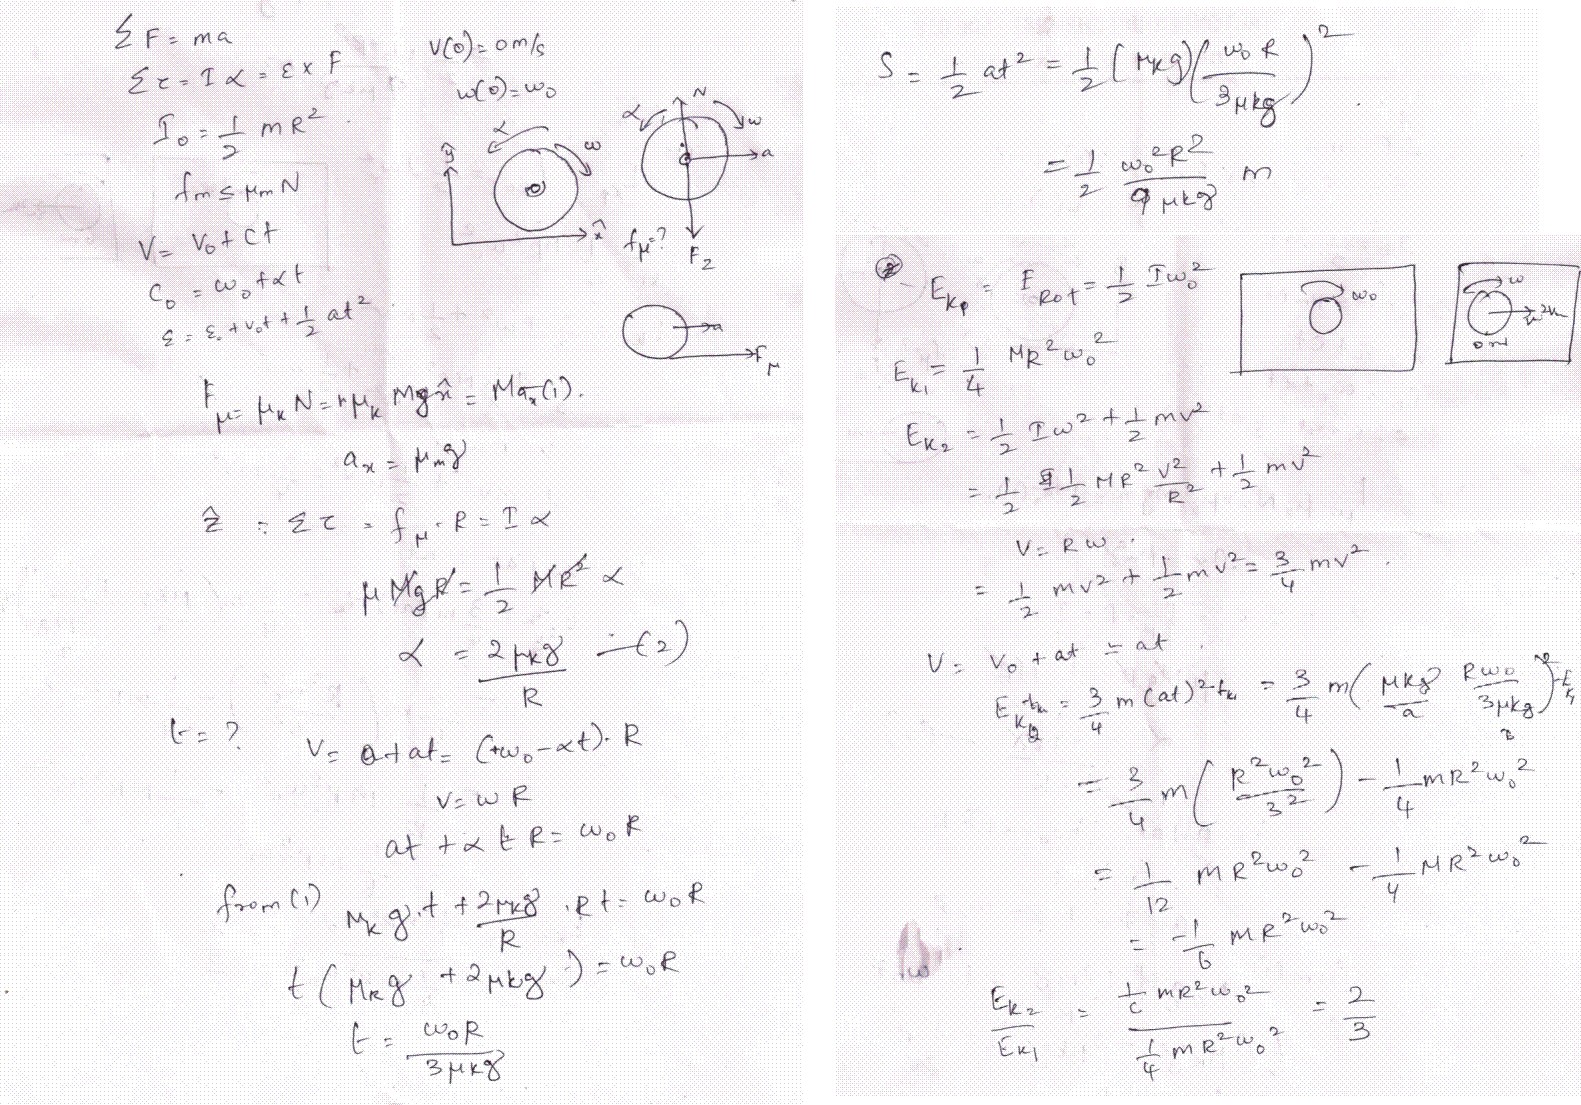 Σ F = ma
Σ τ = I α = ε x F
I₀ = 1/2 mR²
fm ≤ μm N
V = V₀ + Ct
C₀ = ω₀ + αt
ε = ε₀ + v₀t + 1/2 at²
V(0) = 0 m/s
ω(0) = ω₀
ŷ
x̂
α
ω
α
N
ω
a
fμ = ?
F₂
a
Fμ
Fμ = μk N = μk Mg x̂ = Max (1).
ax = μm g
ẑ : Σ τ = fμ · R = I α
μ MgR = 1/2 MR² α
α = 2μkg / R —(2)
t = ?
V = 0 + at = (+ω₀ - αt). R
V = ω R
at + α t R = ω₀ R
from (1) μk g.t + 2μkg / R . R t = ω₀ R
t ( μk g + 2 μkg ) = ω₀ R
t = ω₀R / 3 μkg
S = 1/2 at² = 1/2 ( μk g) ( ω₀ R / 3 μkg )²
= 1/2 ω₀² R² / 9 μkg m
Ek₀ = E Rot = 1/2 I ω₀²
ω₀
ω
Ek₁ = 1/4 MR² ω₀²
Ek₂ = 1/2 I ω² + 1/2 mv²
= 1/2 1/2 MR² v²/R² + 1/2 mv²
V = R ω
= 1/2 mv² + 1/2 mv² = 3/4 mv²
V = V₀ + at = at
= 3/4 m (at)² = 3/4 m ( μkg / a Rω₀ / 3μkg )²
= 3/4 m ( R² ω₀² / 3² ) - 1/4 mR² ω₀²
= 1/12 MR² ω₀² - 1/4 MR² ω₀²
= -1/6 MR² ω₀²
Ek₂ / Ek₁ = 1/6 mR² ω₀² / 1/4 mR² ω₀² = 2/3